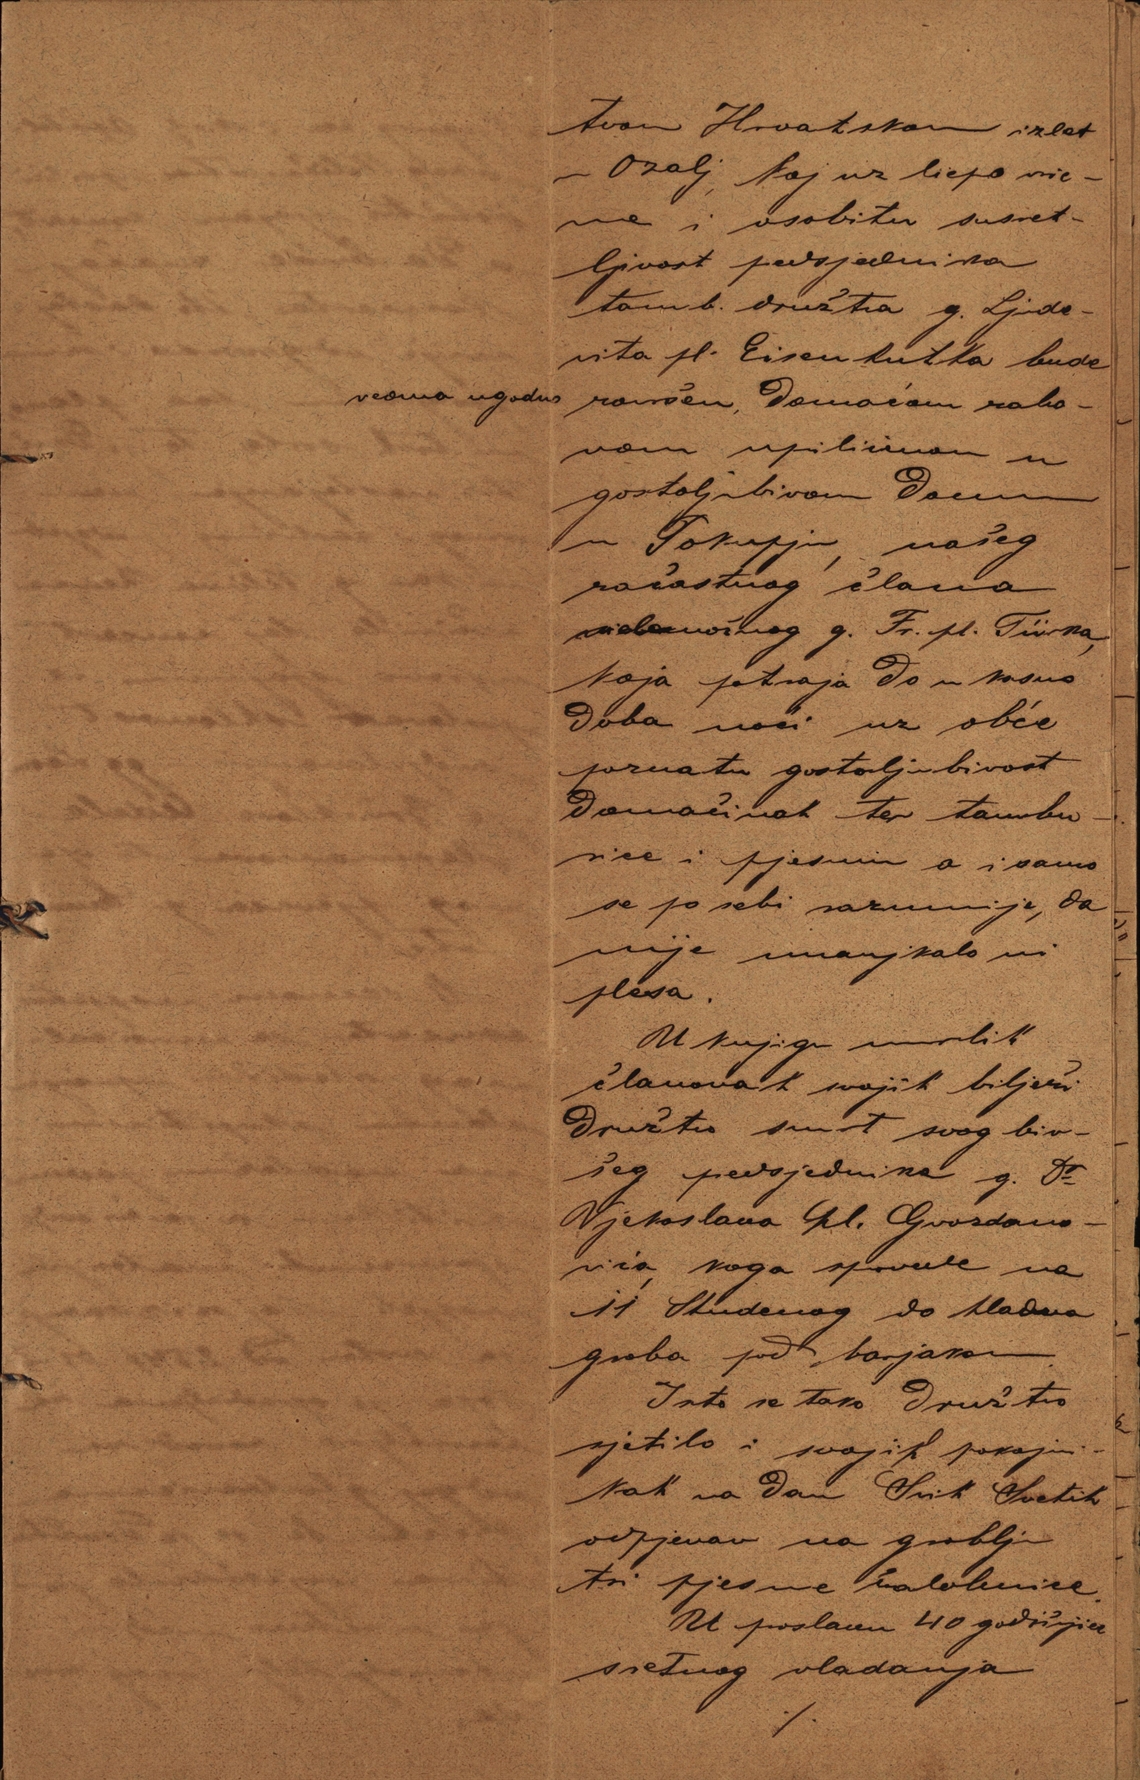 tvom Hrvatskom izlet
u Ozalj, koj uz liepo vrie-
me i osobitu susret-
ljivost predsjednika
tamb. družtva g. Ljude-
vita pl. Eisenhutha bude
veoma ugodno završen, domaćom zaba-
vom u
gostoljubivom domu
u Pokupju, našeg
začastnog člana
g. Fr. pl. Türka,
koja potraja do u kasno
doba noći uz obće
poznatu gostoljubivost
domaćinah ter tambu-
rice i pjesmu a i samo
se po sebi razumije, da
nije manjkalo ni
plesa.
U knjigu umrlih
članovah svojih bilježi
družtvo smrt svog biv-
šeg predsjednika g. Dr
Vjekoslava pl. Gvozdano-
vića, koga sprovede na
11 Studenog do hladna
groba pod barjakom.
Isto se tako družtvo
sjetilo i svojih pokojni-
kah na dan Svih Svetih
odpjevav na groblju
tri pjesme žalobnice.
U proslavu 40 godišnjice
sretnog vladanja
./.